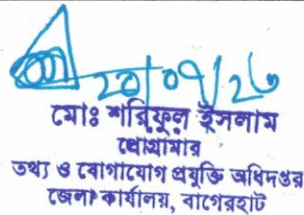 ২০/০৭/২৬
মোঃ শরিফুল ইসলাম
প্রোগ্রামার
তথ্য ও যোগাযোগ প্রযুক্তি অধিদপ্তর
জেলা কার্যালয়, বাগেরহাট